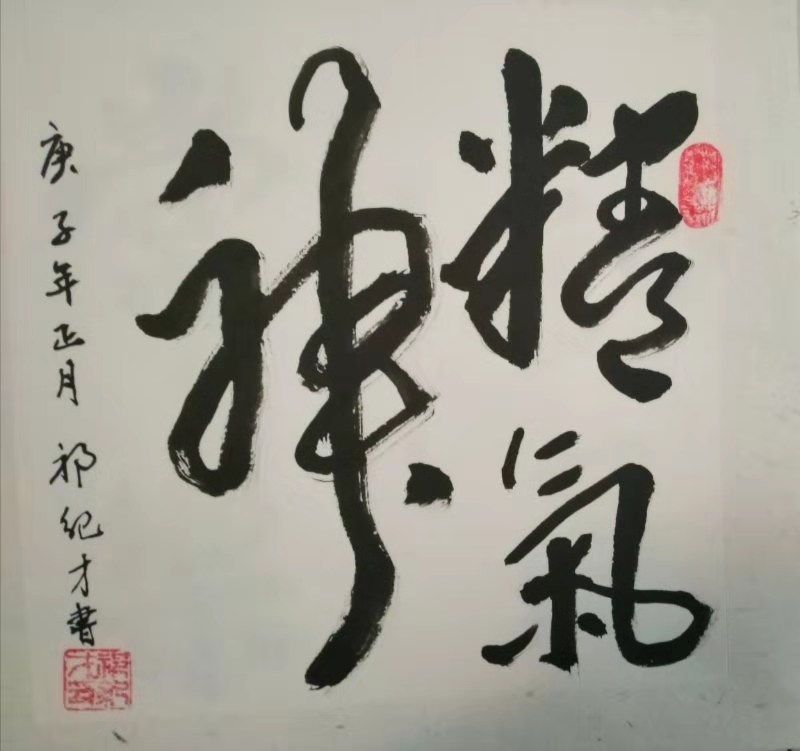 精氣
神
庚子年正月祁纪才書